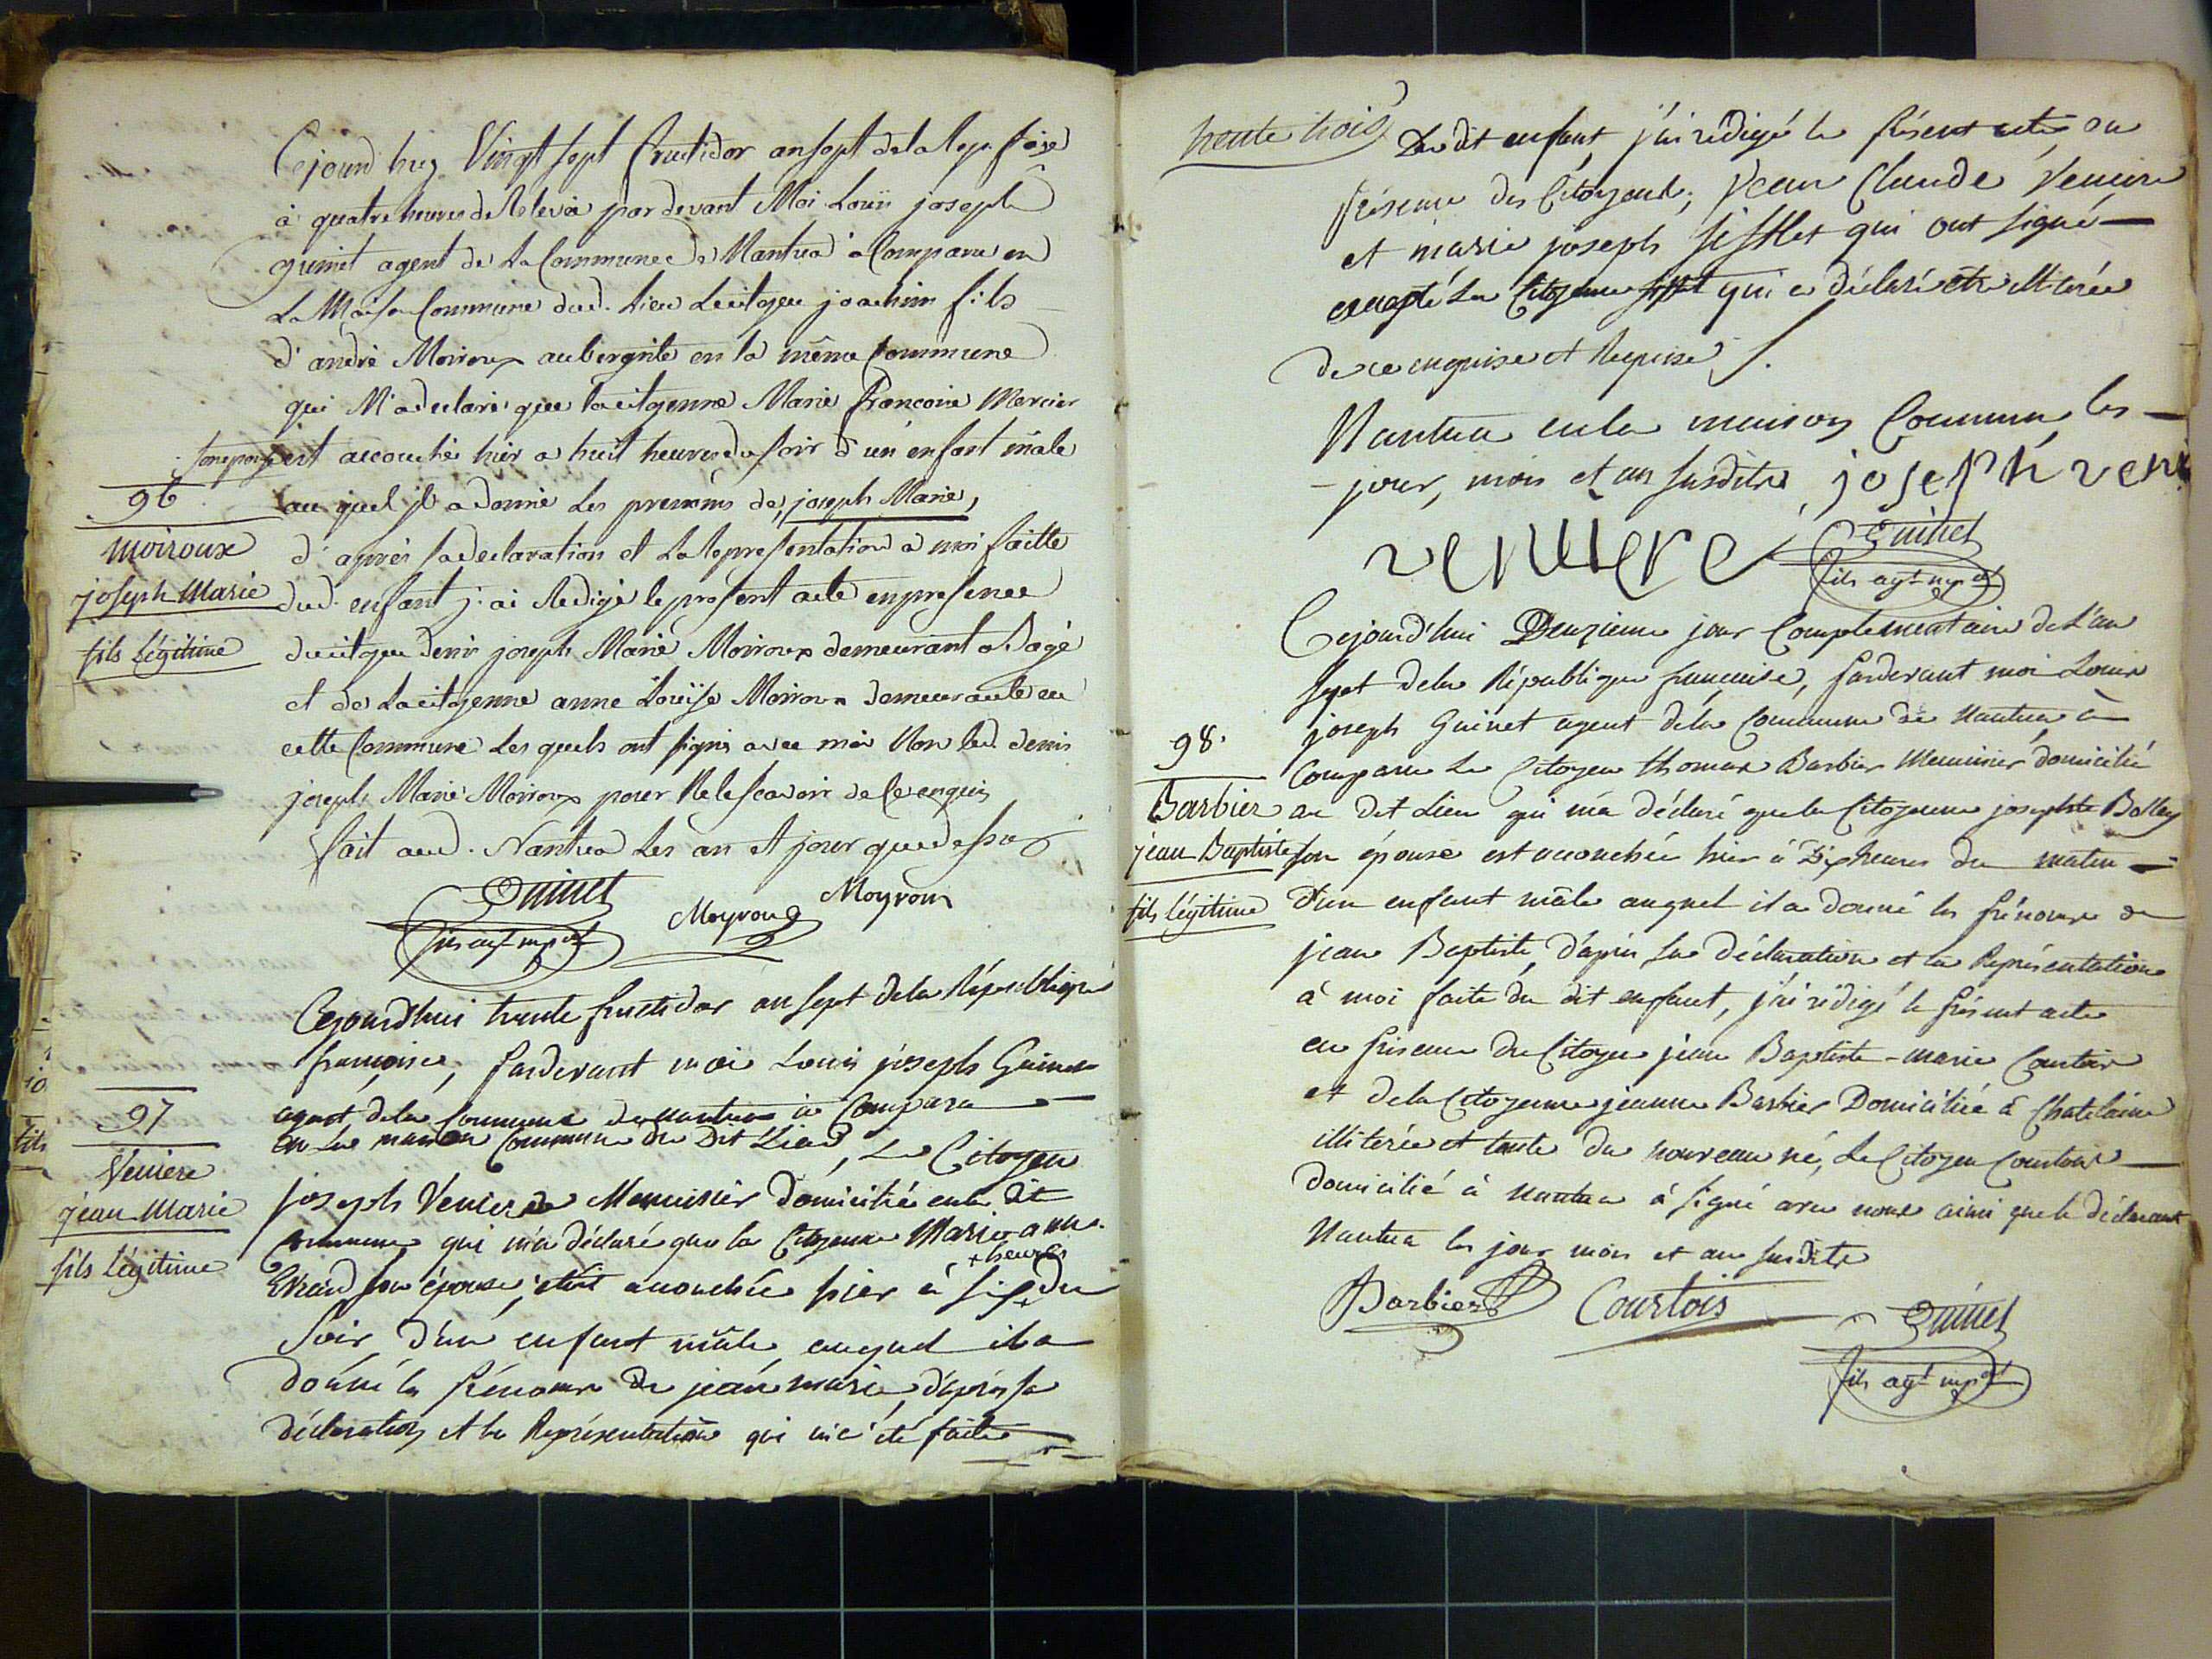 Cejourd huy Vingt sept fructidor an sept de la Rep. fçoise
à quatre heures de Relevée par devant Moi Louis joseph
guinet agent de La Commune de Nantua à Comparu en
La Maison Commune dud. Lieu Le citoyen joachim fils
d'andré Moiroux aubergiste en la même Commune
qui M'a declaré que la citoyenne Marie françoise Mercier
son epouse est accouchée hier a huit heures du soir d'un enfant mâle
96
au quel jl a donné Les prenoms de joseph Marie,
moiroux
d'après sa declaration et La Representation a moi faitte
joseph Marie
dud. enfant j'ai Redigé le present acte en presence
fils légitime
du citoyen denis joseph Marie Moiroux demeurant a Bagé
et de La citoyenne anne Louise Moiroux demeurante en
cette Commune Les quels ont signé avec moi Non led. denis
joseph Marie Moiroux pour Ne le scavoir de Ce enquis
fait aud. Nantua Les an et jour que dessus
Guinet Moyroux Moyroux
fils agt mpal
Cejourd'hui trente fructidor an sept de la République
françoise, pardevant moi Louis joseph Guinet
97
agent de la Commune de nantua à Comparu
en La maison Commune du Dit Lieu, Le Citoyen
Veniere
joseph Veniere Menuisier domicilié en la dit
jean Marie
Commune qui m'a déclaré que la Citoyenne Marie anne
+ heures
fils légitime
son épouse, étoit accouchée hier à six + du
Soir d'un enfant mâle auquel il a
donné les prénoms de jean marie, d'après sa
déclaration et la Représentation qui m'a été faite
trente trois
Du dit enfant, j'ai rédigé le présent acte, en
présence des Citoyens, jean Claude Veniere
et marie joseph Sifflet qui ont signé
excepté La Citoyenne qui a déclaré être illiterée
de ce enquise et Requise.
Nantua en la maison Commune, les
jour, mois et an susdits joseph veni
veniere Guinet
fils agt mpal
Cejourd'hui Deuzieme jour Complementaire de L'an
sept de la République françoise, pardevant moi Louis
joseph Guinet agent de la Commune de Nantua à
98.
Comparu Le Citoyen thomas Barbier Menuisier domicilié
Barbier
au dit Lieu qui m'a déclaré que la Citoyenne josephte Bolley
jean Baptiste
son épouse est accouchée hier à Dix heures du matin
fils légitime
d'un enfant mâle auquel il a donné les prénoms de
jean Baptiste, d'après sa déclaration et la Représentation
à moi faite du dit enfant, j'ai rédigé le présent acte
en présence du Citoyen jean Baptiste-marie Courtois
et de la Citoyenne jeanne Barbier Domiciliée à Chatelaine
illiterée et tante du nouveau né, Le Citoyen Courtois
domicilié à Nantua à signé avec nous ainsi que le déclarant
Nantua les jour mois et an susdits
Barbier Courtois Guinet
fils agt mpal